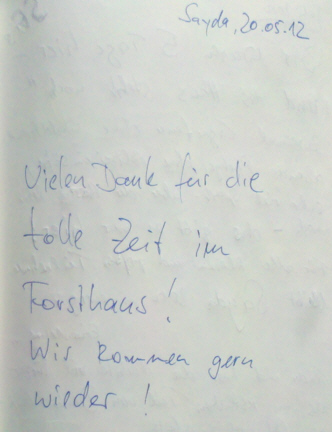 Sayda, 20.05.12
Vielen Dank für die
tolle Zeit im
Forsthaus!
Wir kommen gern
wieder!